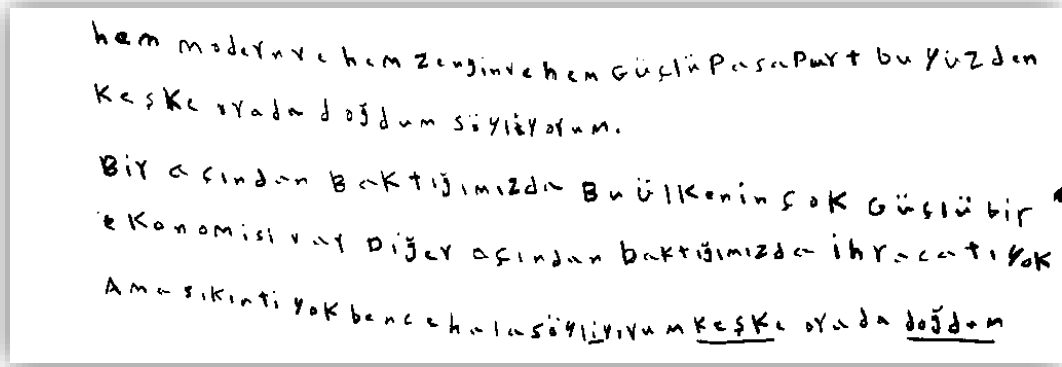 hem modern ve hem zengin ve hem Güçlü Pasapurt bu yüzden
Keşke orada doğdum söyliyorum.
Bir açından Baktığımızda Bu ülkenin çok Güçlü bir
ekonomisi var Diğer açından baktığımızda ihracatı yok
Ama sıkıntı yok bence hala söyliyorum keşke orada doğdum